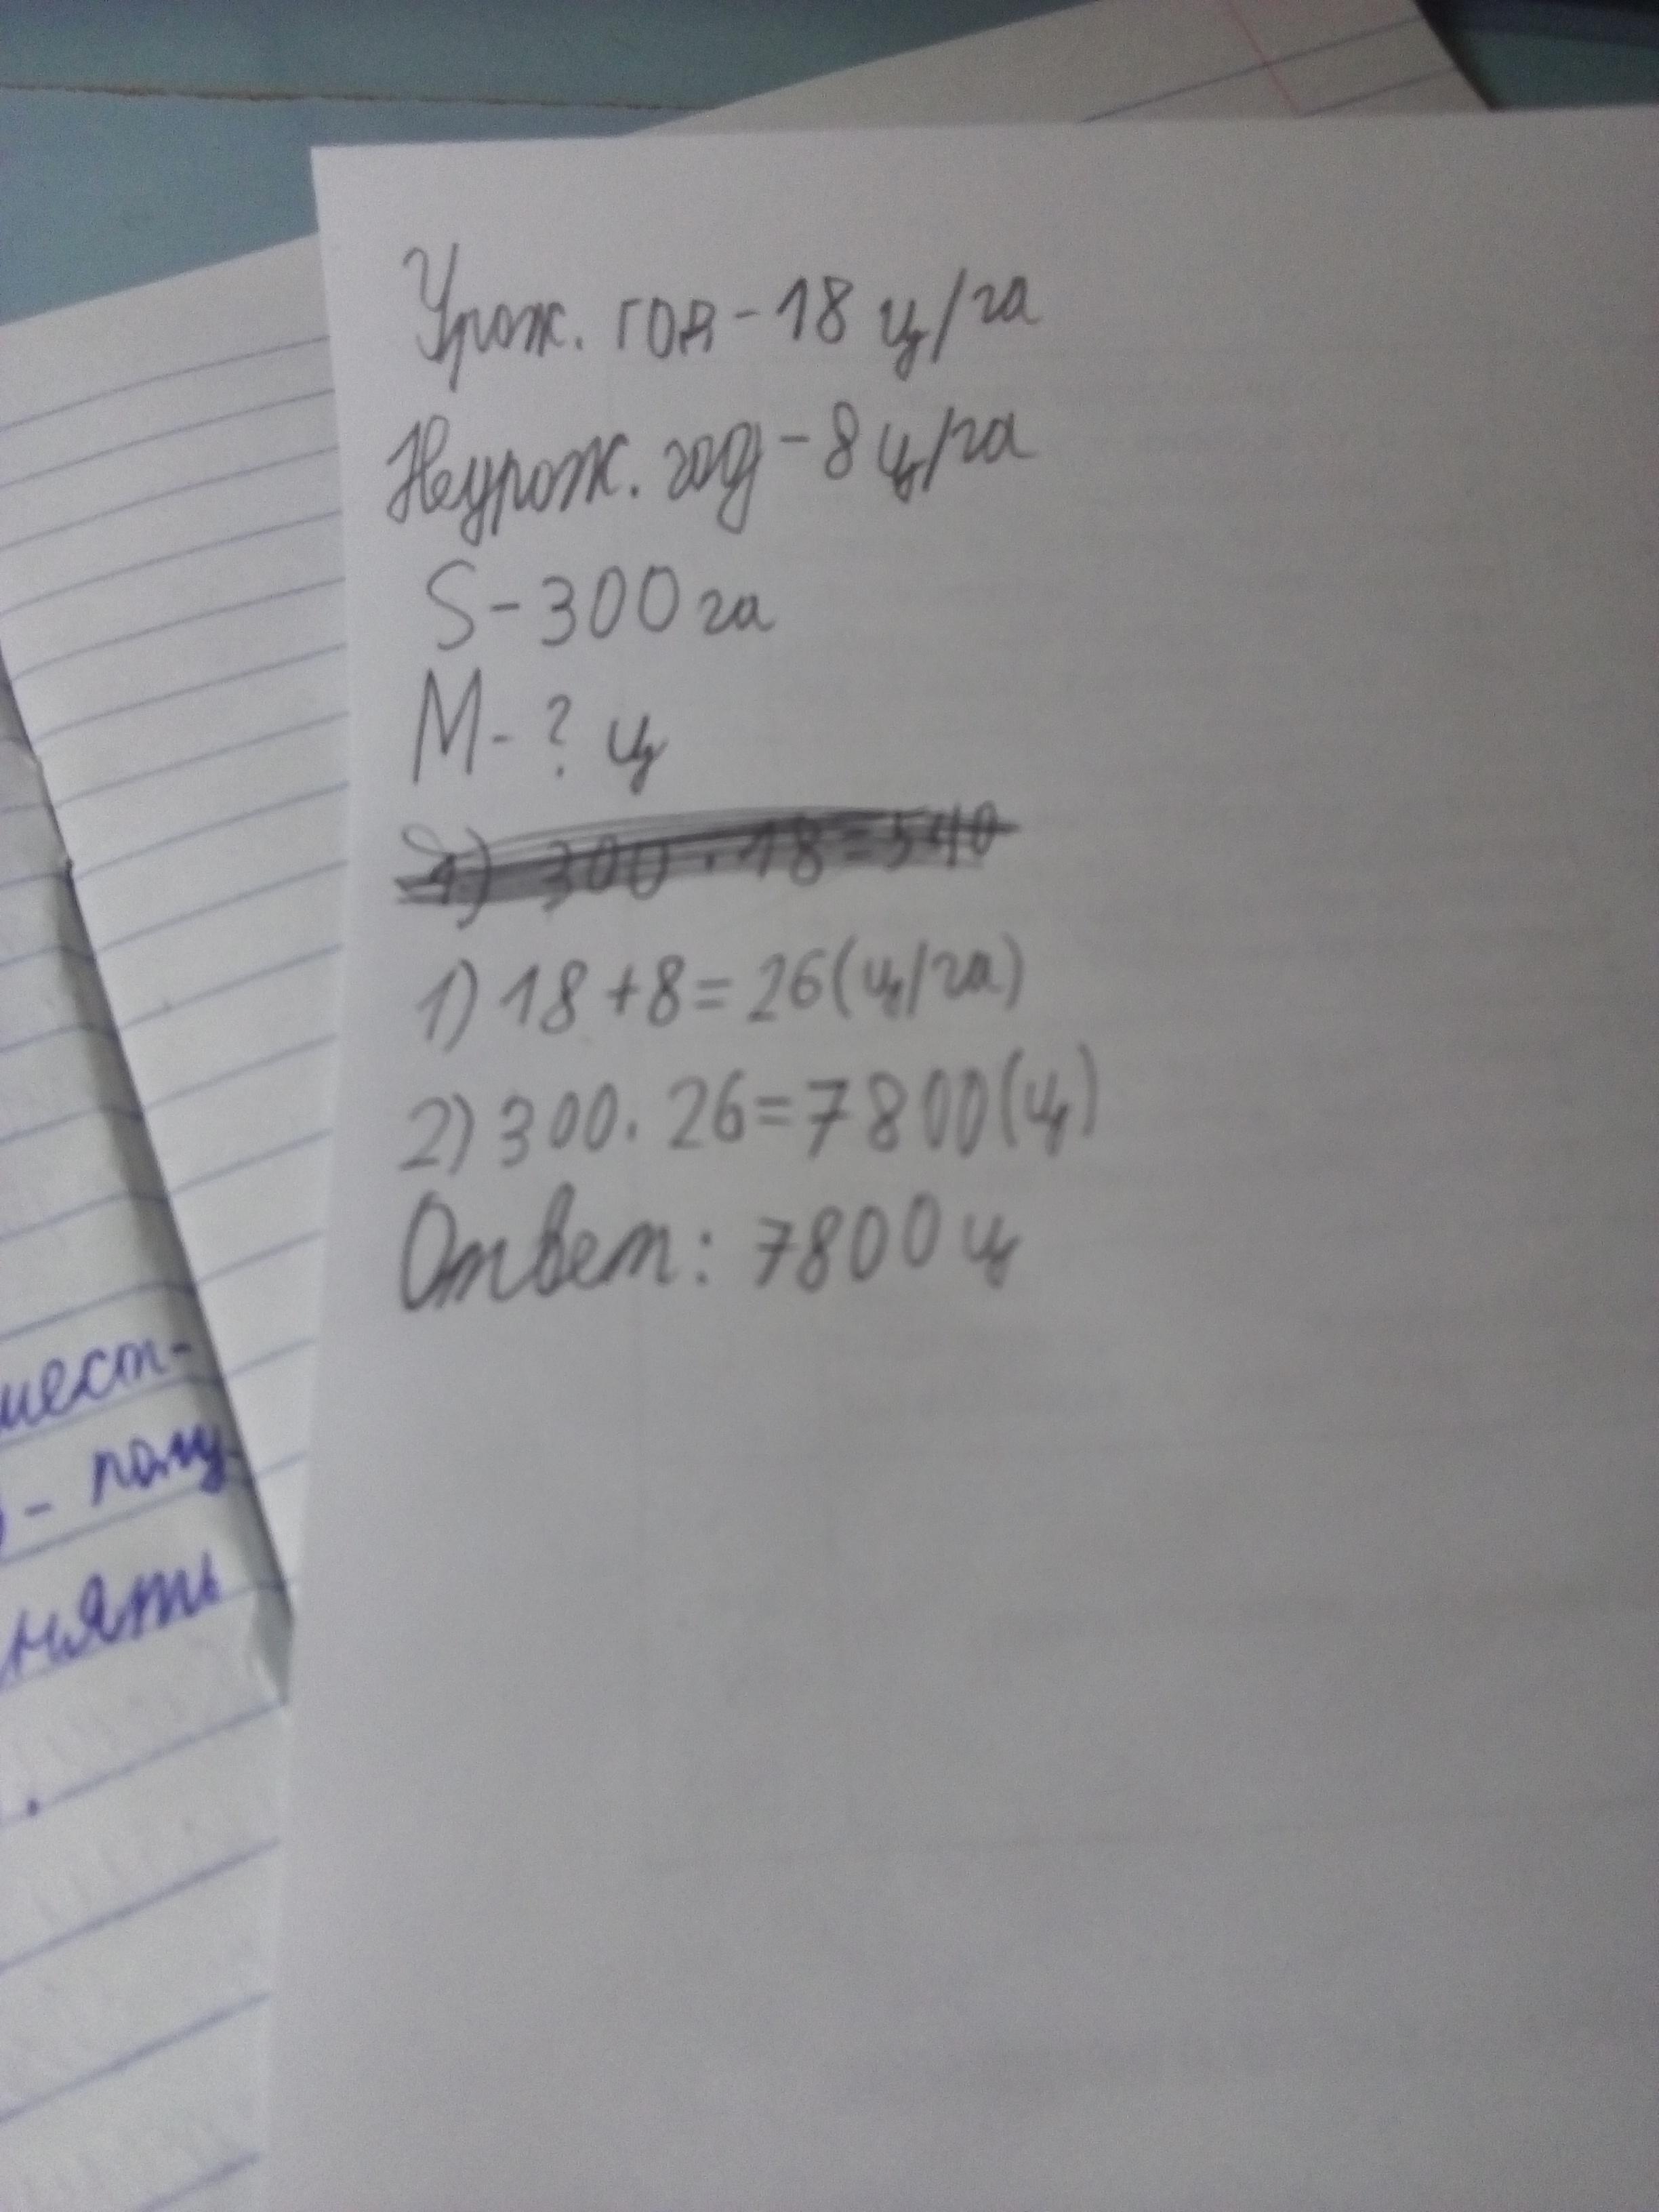 Урож. год - 18 ц/га
Неурож. год - 8 ц/га
S - 300 га
М - ? ц
1) 300 · 18 = 540
1) 18 + 8 = 26 (ц/га)
2) 300 · 26 = 7800 (ц)
Ответ: 7800 ц
шест-
- полу-
нять
.